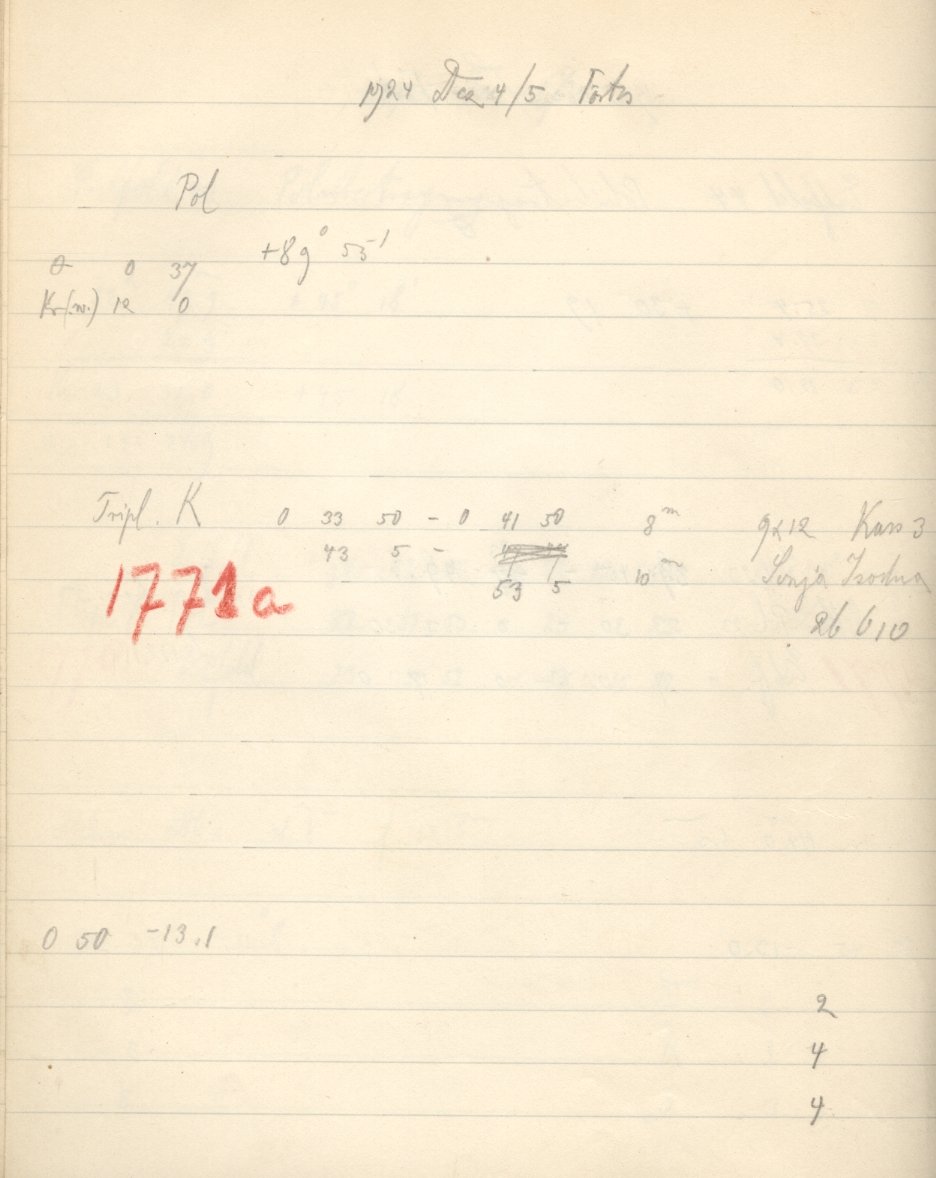 1924 Dez 4/5
Pol
+89° 55'
θ 0 37
Kr(w.) 12 0
Tripl. K 0 33 50 - 0 41 50 8m 9x12 Kass 3
43 5 - 53 5 10m Sonja
1771a
26 610
0 50 -13.1
2
4
4